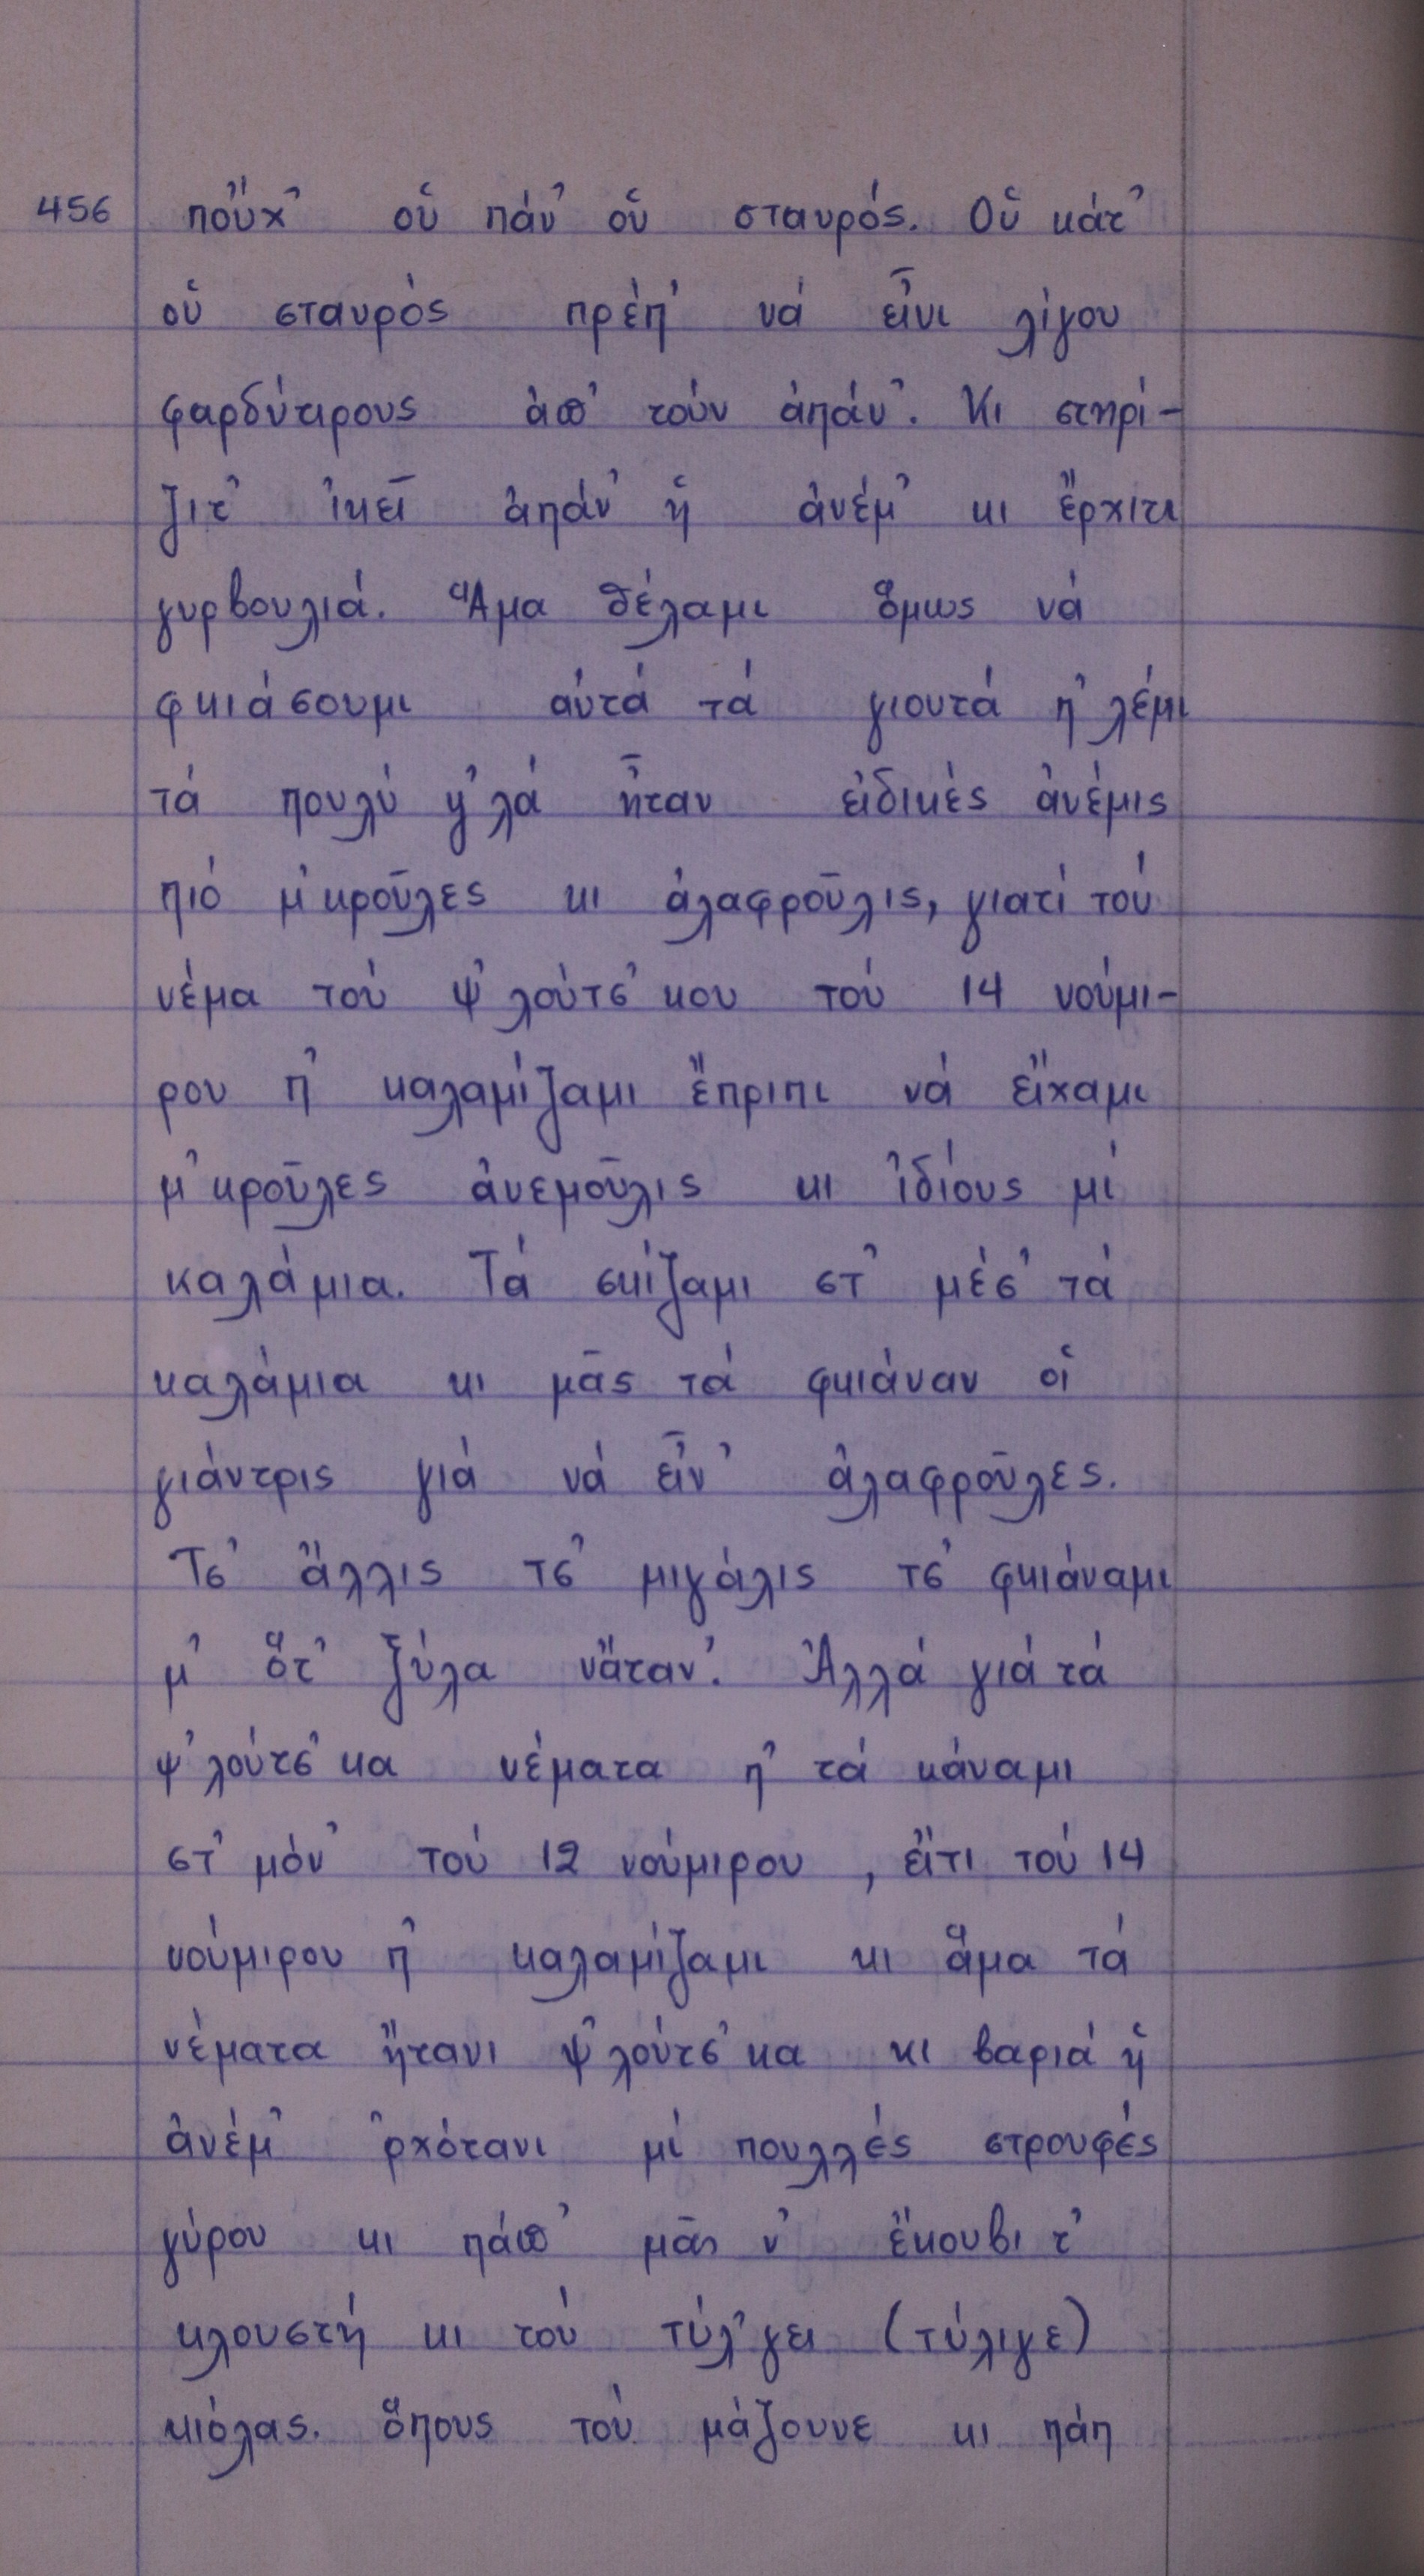 456 ποὔχ᾿ οὑ πάν᾿ οὑ σταυρός. Οὑ κάτ᾿
οὑ σταυρός πρέπ᾿ νά εἶνι λίγου
φαρδύτιρους ἀπ᾿ τούν ἀπάν᾿. Κι στηρί-
ζιτ᾿ ἰκεῖ ἀπάν᾿ ἡ ἀνέμ᾿ κι ἔρχιτι
γυρβουλιά. Ἅμα θέλαμι ὅμως νά
φκιάσουμι αὐτά τά γιουτά π᾿ λέμι
τά πουλύ ψ᾿λά ἦταν εἰδικές ἀνέμις
πιό μ᾿κροῦλες κι ἀλαφροῦλις, γιατί τού
νέμα τού ψ᾿λούτσ᾿κου τού 14 νούμι-
ρου π᾿ καλαμίζαμι ἔπριπι νά εἴχαμι
μ᾿κροῦλες ἀνεμοῦλις κι ἰδίους μί
καλάμια. Τά σκίζαμι στ᾿ μέσ᾿ τά
καλάμια κι μᾶς τά φκιάναν οἱ
γιάντρις γιά νά εἶν᾿ ἀλαφροῦλες.
Τσ᾿ ἄλλις τσ᾿ μιγάλις τσ᾿ φκιάναμι
μ᾿ ὅτ᾿ ξύλα νἄταν᾿. Ἀλλά γιά τά
ψ᾿λούτσ᾿κα νέματα π᾿ τά κάναμι
στ᾿ μόν᾿ τού 12 νούμιρου, εἴτι τού 14
νούμιρου π᾿ καλαμίζαμι κι ἅμα τά
νέματα ἤτανι ψ᾿λούτσ᾿κα κι βαριά ἡ
ἀνέμ᾿ ᾿ρχότανι μί πουλλές στρουφές
γύρου κι πάπ᾿ μᾶς ν᾿ ἔκουβι τ᾿
κλουστή κι τού τύλ᾿γει (τύλιγε)
κιόλας. ὅπους τού μάζουνε κι πάπ